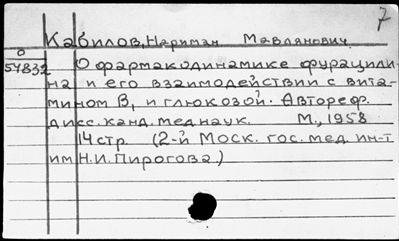 7
Кабилов, Нариман Мавлянович.
О
57832
О фармакодинамике фурацили-
на и его взаимодействии с вита-
мином В₁ и глюкозой. Автореф.
дисс. канд. мед наук. М., 1958
14 стр. (2-й Моск. гос. мед. ин-т
им Н.И. Пирогова.)